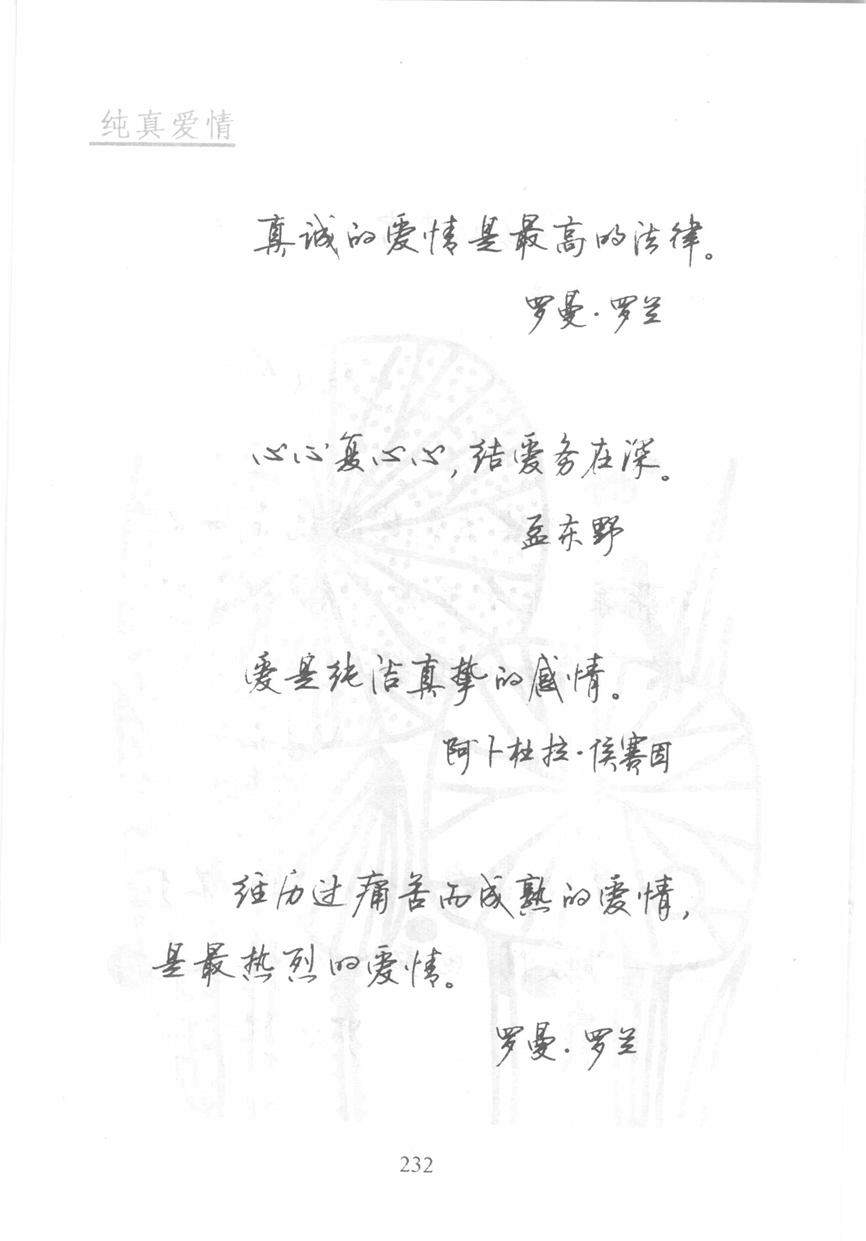 纯真爱情
真诚的爱情是最高的法律。
罗曼·罗兰
心心复心心,结爱务在深。
孟东野
爱是纯洁真挚的感情。
阿卜杜拉·侯赛因
经历过痛苦而成熟的爱情,
是最热烈的爱情。
罗曼·罗兰
232